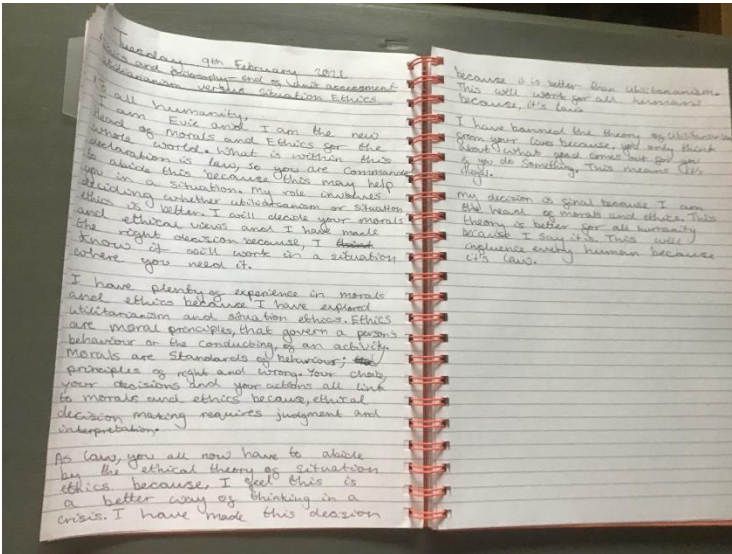 Tuesday 9th February 2021
Ethics and philosophy - end of unit assessment
Utilitarianism versus Situation Ethics
all humanity,
I am Evie and I am the new
Head of Morals and Ethics for the
whole world. What is within this
declaration is law, so you are commanded
to abide this because this may help
you in a situation. My role involves
deciding whether utilitarianism or situation
ethics is better. I will decide your morals
and ethical views and I have made
the right decision because, I
know it will work in a situation
where you need it.
I have plenty of experience in morals
and ethics because I have explored
utilitarianism and situation ethics. Ethics
are moral principles, that govern a person's
behaviour or the conducting, of an activity.
Morals are standards of behaviour;
principles of right and wrong. Your
your decisions and your actions all link
to morals and ethics because, ethical
decision making requires judgment and
interpretation.
As law, you all now have to abide
by the ethical theory of situation
ethics because, I feel this is
a better way of thinking in a
crisis. I have made this decision
because it is better than utilitarianism.
This will work for all humans
because, it's law
I have banned the theory of utilitarianism
from your lives because, you only think
about what good comes out for you
if you do something. This means it's
illegal.
My decision is final because I am
the head of morals and ethics. This
theory is better for all humanity
because I say it is. This will
influence every human because
it's law.